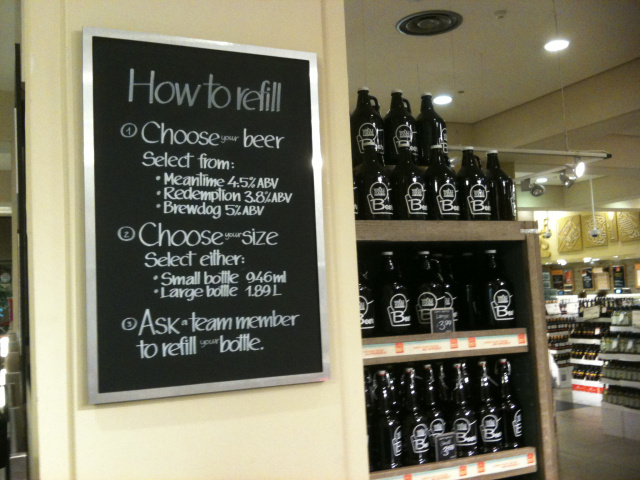 How to refill
1 Choose your beer
Select from:
• Meantime 4.5% ABV
• Redemption 3.8% ABV
• Brewdog 5% ABV
2 Choose your size
Select either:
• Small bottle 946ml
• Large bottle 1.89 L
3 Ask a team member
to refill your bottle.